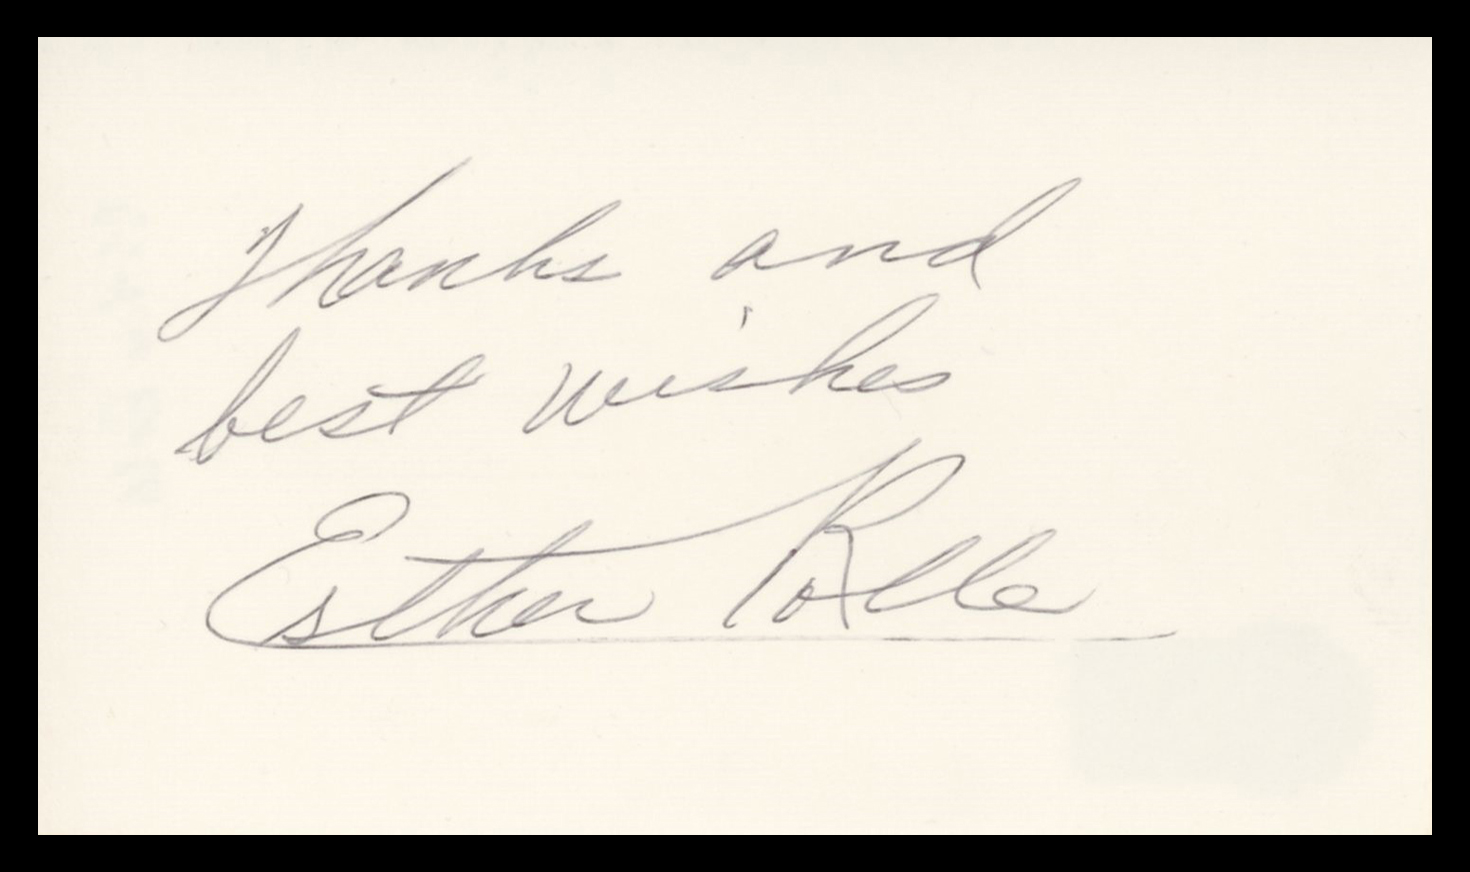 Thanks and
best wishes
Esther Rolle